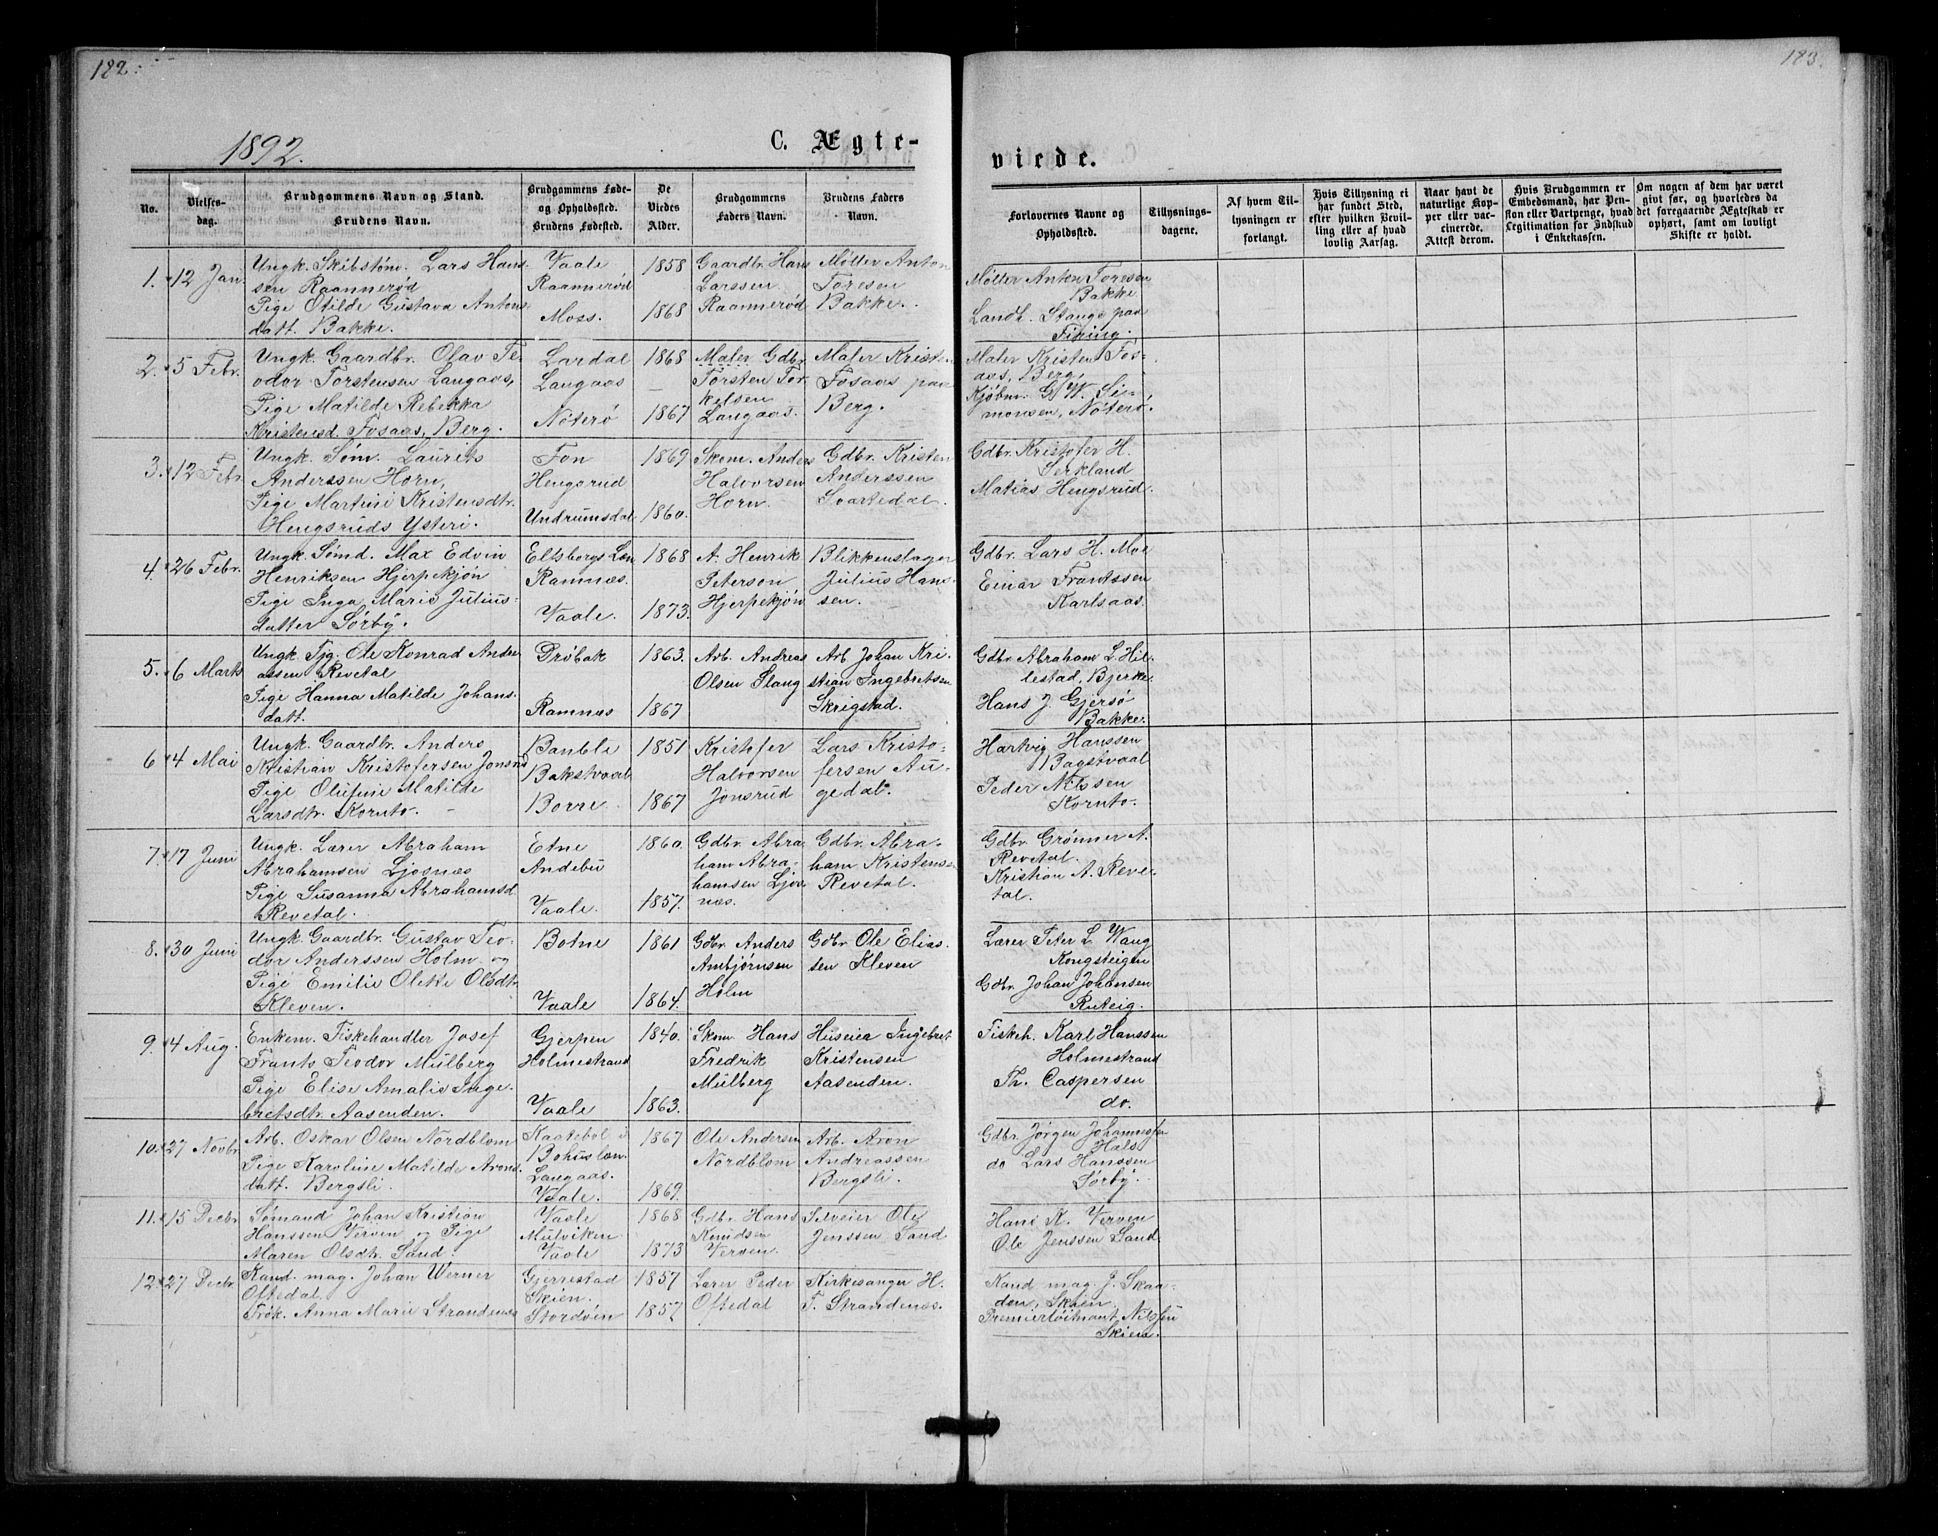 182.
183.
1892.
C. Ægte-
viede.
No.
Vielses-
dag.
Brudgommens Navn og Stand.
Brudens Navn.
Brudgommens Føde-
og Opholdsted.
Brudens Fødested.
De
Viedes
Alder.
Brudgommens
Faders Navn.
Brudens Faders
Navn.
Forlovernes Navne og
Opholdsted.
Tillysnings-
dagene.
Af hvem Til-
lysningen er
forlangt.
Hvis Tillysning ei
har fundet Sted,
efter hvilken Bevil-
ling eller af hvad
lovlig Aarsag.
Naar havt de
naturlige Kop-
per eller vac-
cinerede.
Attest derom.
Hvis Brudgommen er
Embedsmand, har Pen-
sion eller Vartpenge, hvad
Legitimation for Indskud
i Enkekassen.
Om nogen af dem har været
givt før, og hvorledes da
det foregaaende Ægteskab er
ophørt, samt om lovligt
Skifte er holdt.
1.
12 Jan
Ungk. Skibstøm. Lars Hans-
sen Raannerød
Pige Otilde Gustava Antons
datt. Bakke.
Vaale
Raannerød
Moss.
1858
1868
Gaardbr. Hans
Larssen
Raannerød
Møller Anton
Toresen
Bakke.
Møller Anton Toresen
Bakke
Landh. Stange paa
2.
5 Febr.
Ungk. Gaardbr. Olav Te-
odor Torstensen Langaas,
Pige Matilde Rebekka
Kristensd. Fosaas, Berg.
Lardal
Langaas
Nøterø
1868
1867
Maler Gdbr.
Torsten Tor-
kelsen
Langaas.
Maler Kristen
Fosaas paa
Berg.
Maler Kristen Fos-
aas, Berg,
Kjøbm. G. W. Si-
monsen, Nøterø.
3.
12 Febr.
Ungk. Søm. Laurits
Anderssen Horn,
Pige Martine Kristensdtr.
Hengsruds Ysteri.
Fon
Hengsrud
Undrumsdal
1869
1860.
Skom. Anders
Halvorsen
Horn.
Gdbr. Kristen
Anderssen
Svartedal.
Gdbr. Kristofer H.
Serkland
Matias Hengsrud.
4.
26 Febr.
Ungk. Sømd. Max Edvin
Henriksen Hjerpekjøn
Pige Inga Marie Julius-
datter Sørby.
Elfsborgs Læn
Ramnæs.
Vaale.
1868
1873.
A. Henrik
Peterson
Hjerpekjøn
Blikkenslager
Julius Hans-
sen.
Gdbr. Lars H. Moe
Einar Frantssen
Karlsaas.
5.
6 Marts
Ungk. Tjg. Ole Konrad Andre-
assen Revetal
Pige Hanna Matilde Johans-
datt.
Drøbak
Ramnæs
1863.
1867
Arb. Andreas
Olsen Slang
Arb. Johan Kri-
stian Ingebretsen
Skrigstad.
Gdbr. Abraham L. Hil-
lestad, Bjerke
Hans J. Gjersø
Bakke.
6
4 Mai
Ungk. Gaardbr. Anders
Kristian Kristofersen Jonsrud
Pige Olufine Matilde
Larsdtr. Kornto.
Bamble
Bakstvaal
Borre.
1851
1867
Kristofer
Halvorsen
Jonsrud
Lars Kristo-
fersen Au-
gedal.
Hartvig Hanssen
Bagstvaal
Peder Nilssen
Kornto.
7
17 Juni
Ungk. Lærer Abraham
Abrahamsen Ljosnæs
Pige Susanna Abrahamsd.
Revetal.
Etne
Andebu
Vaale.
1860.
1857.
Gdbr. Abra-
ham Abra-
hamsen Ljos-
næs.
Gdbr. Abra-
ham Kristense
Revetal.
Gdbr. Grønner A.
Revetal.
Kristian A. Reve-
tal.
8.
30 Juni
Ungk. Gaardbr. Gustav Teo-
dor Anderssen Holm og
Pige Emilie Olette Olsdtr.
Kleven.
Botne
Vaale
1861
1864.
Gdbr. Anders
Ambjørnsen
Holm
Gdbr. Ole Elias-
sen Kleven
Lærer Peter L. Waug
Kongsteigen
Gdbr. Johan Johansen
Ruteig.
9.
4 Aug.
Enkem. Fiskehandler Josef
Frants Teodor Mülberg
Pige Elise Amalie Inge-
bretsdtr. Aasenden.
Gjerpen
Holmestrand
Vaale
1840.
1863.
Skom. Hans
Fredrik
Mülberg
Huseier Ingebret
Kristensen
Aasenden.
Fiskeh. Karl Hanssen
Holmestrand
Th. Caspersen
do.
10.
27 Novbr.
Arb. Oskar Olsen Nordblom
Pige Karoline Matilde Arons-
datt. Bergsli.
Bohuslæn.
Langaas.
Vaale.
1867
1869.
Ole Andersen
Nordblom
Arb. Aron
Andreassen
Bergsli.
Gdbr. Jørgen Johannessen
Hals
do Lars Hanssen
Sørby.
11.
15 Decbr.
Sømand Johan Kristian
Hanssen Verven og Pige
Maren Olsdtr. Sand.
Vaale
Mulviken
Vaale
1868
1873
Gdbr. Hans
Knudsen
Verven.
Selveier Ole
Jenssen Sand
Hans K. Verven
Ole Jenssen Sand.
12.
27 Decbr.
Kand. mag. Johan Werner
Oftedal
Frøk. Anna Marie Strandenæs
Gjerrestad
Skien.
Stordøen
1857
1857
Lærer Peder
Oftedal
Kirkesanger H.
T. Strandenæs.
Kand mag. J. Skaa-
den, Skien.
Premierløitnant Nilssen
Skien.